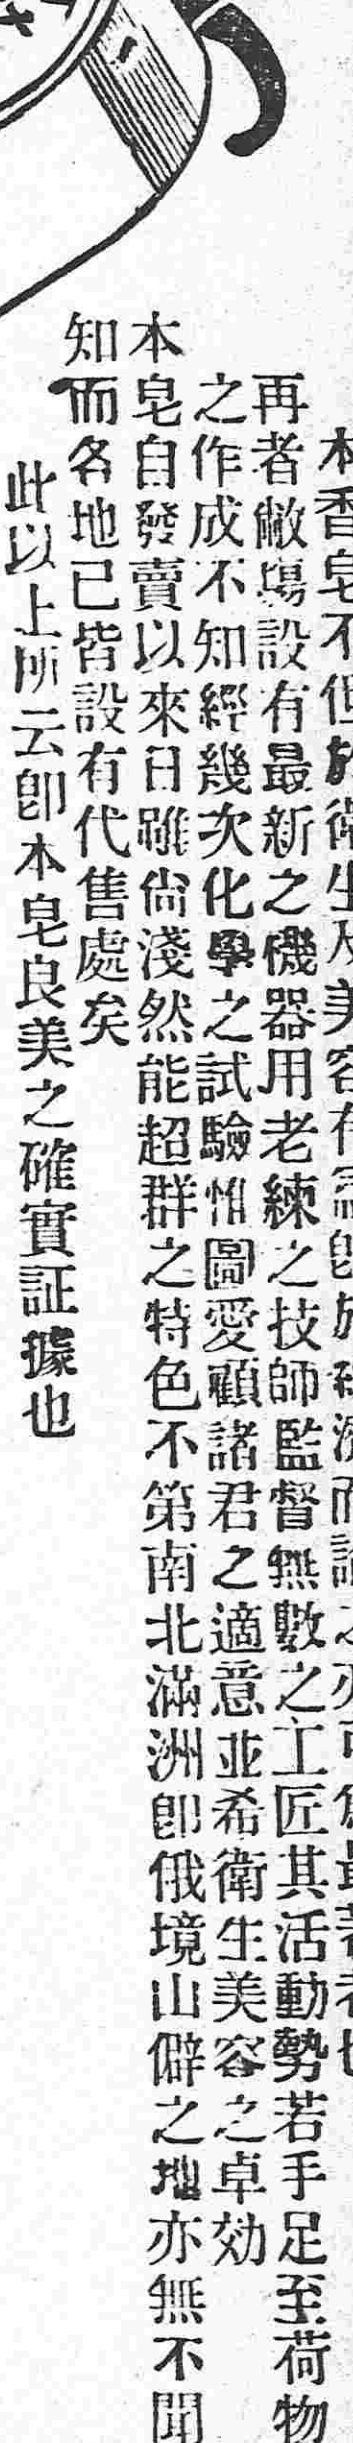 本香皂不但於衛生及美容有而論之亦可為最著者也
再者敝塲設有最新之機器用老練之技師監督無數之工匠其活動勢若手足至荷物
之作成不知經幾次化學之試驗惟圖愛顧諸君之適意並希衛生美容之卓効
本皂自發賣以來日雖尙淺然能超群之特色不第南北滿洲卽俄境山僻之地亦無不聞
知而各地已皆設有代售處矣
此以上所云卽本皂良美之確實証據也